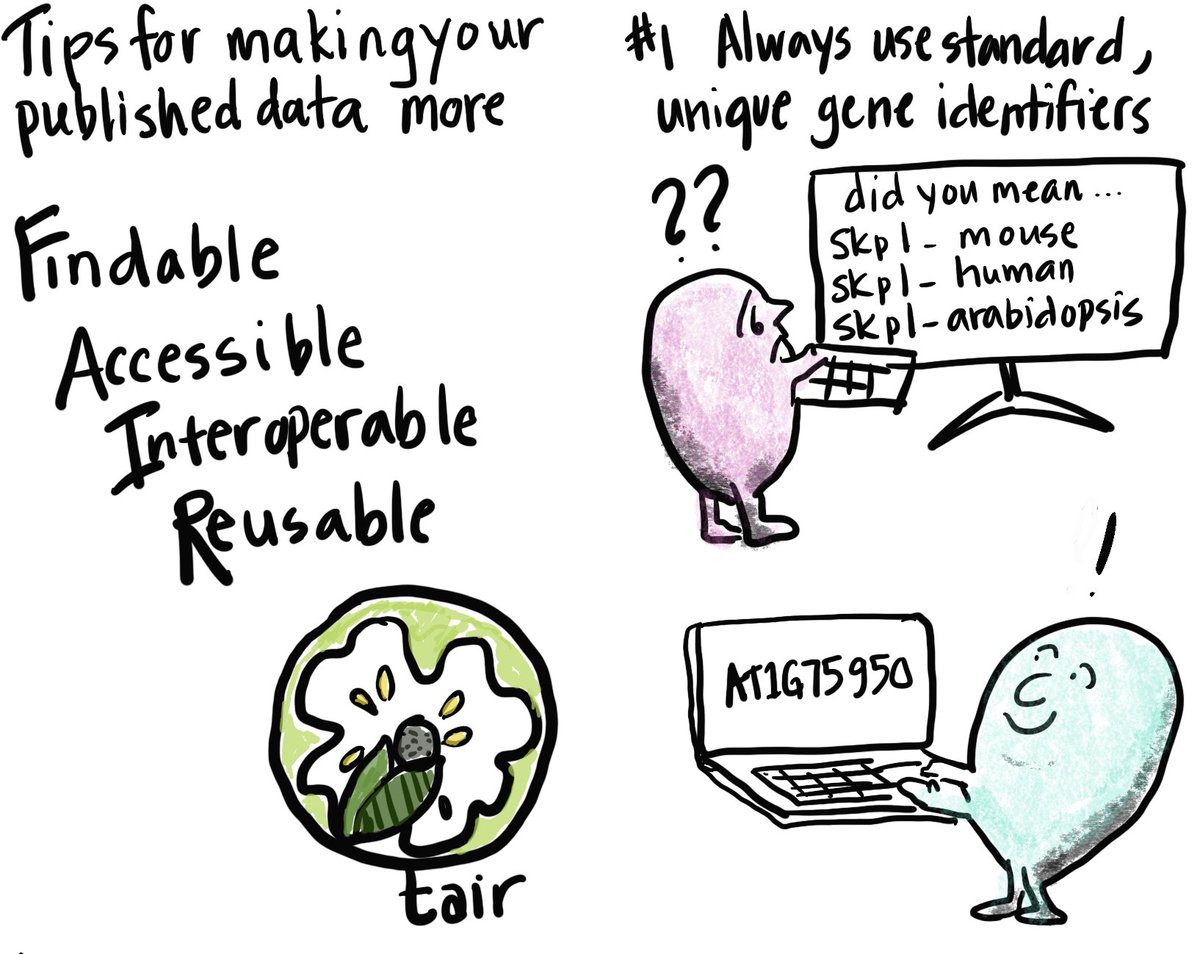 Tips for making your
published data more
Findable
Accessible
Interoperable
Reusable
tair
#1 Always use standard,
unique gene identifiers
??
did you mean ...
skp1 - mouse
skp1 - human
skp1 - arabidopsis
!
AT1G75950